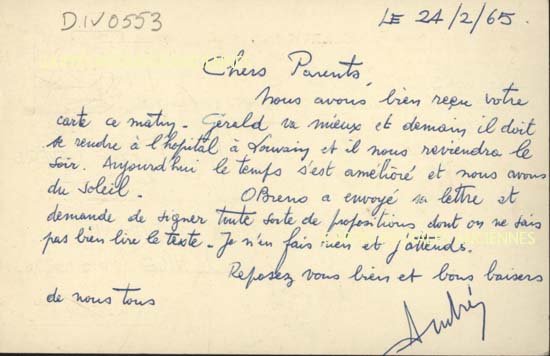 D.IV0553
LE 24/2/65.
Chers Parents,
Nous avons bien reçu votre
carte ce matin. Gérald va mieux et demain il doit
se rendre à l'hôpital à Louvain et il nous reviendra le
soir. Aujourd'hui le temps s'est amélioré et nous avons
du soleil. a envoyé sa lettre et
demande de signer toute sorte de propositions dont on ne sais
pas bien lire le texte. Je n'en fais rien et j'attends.
Reposez vous bien et bons baisers
de nous tous
André